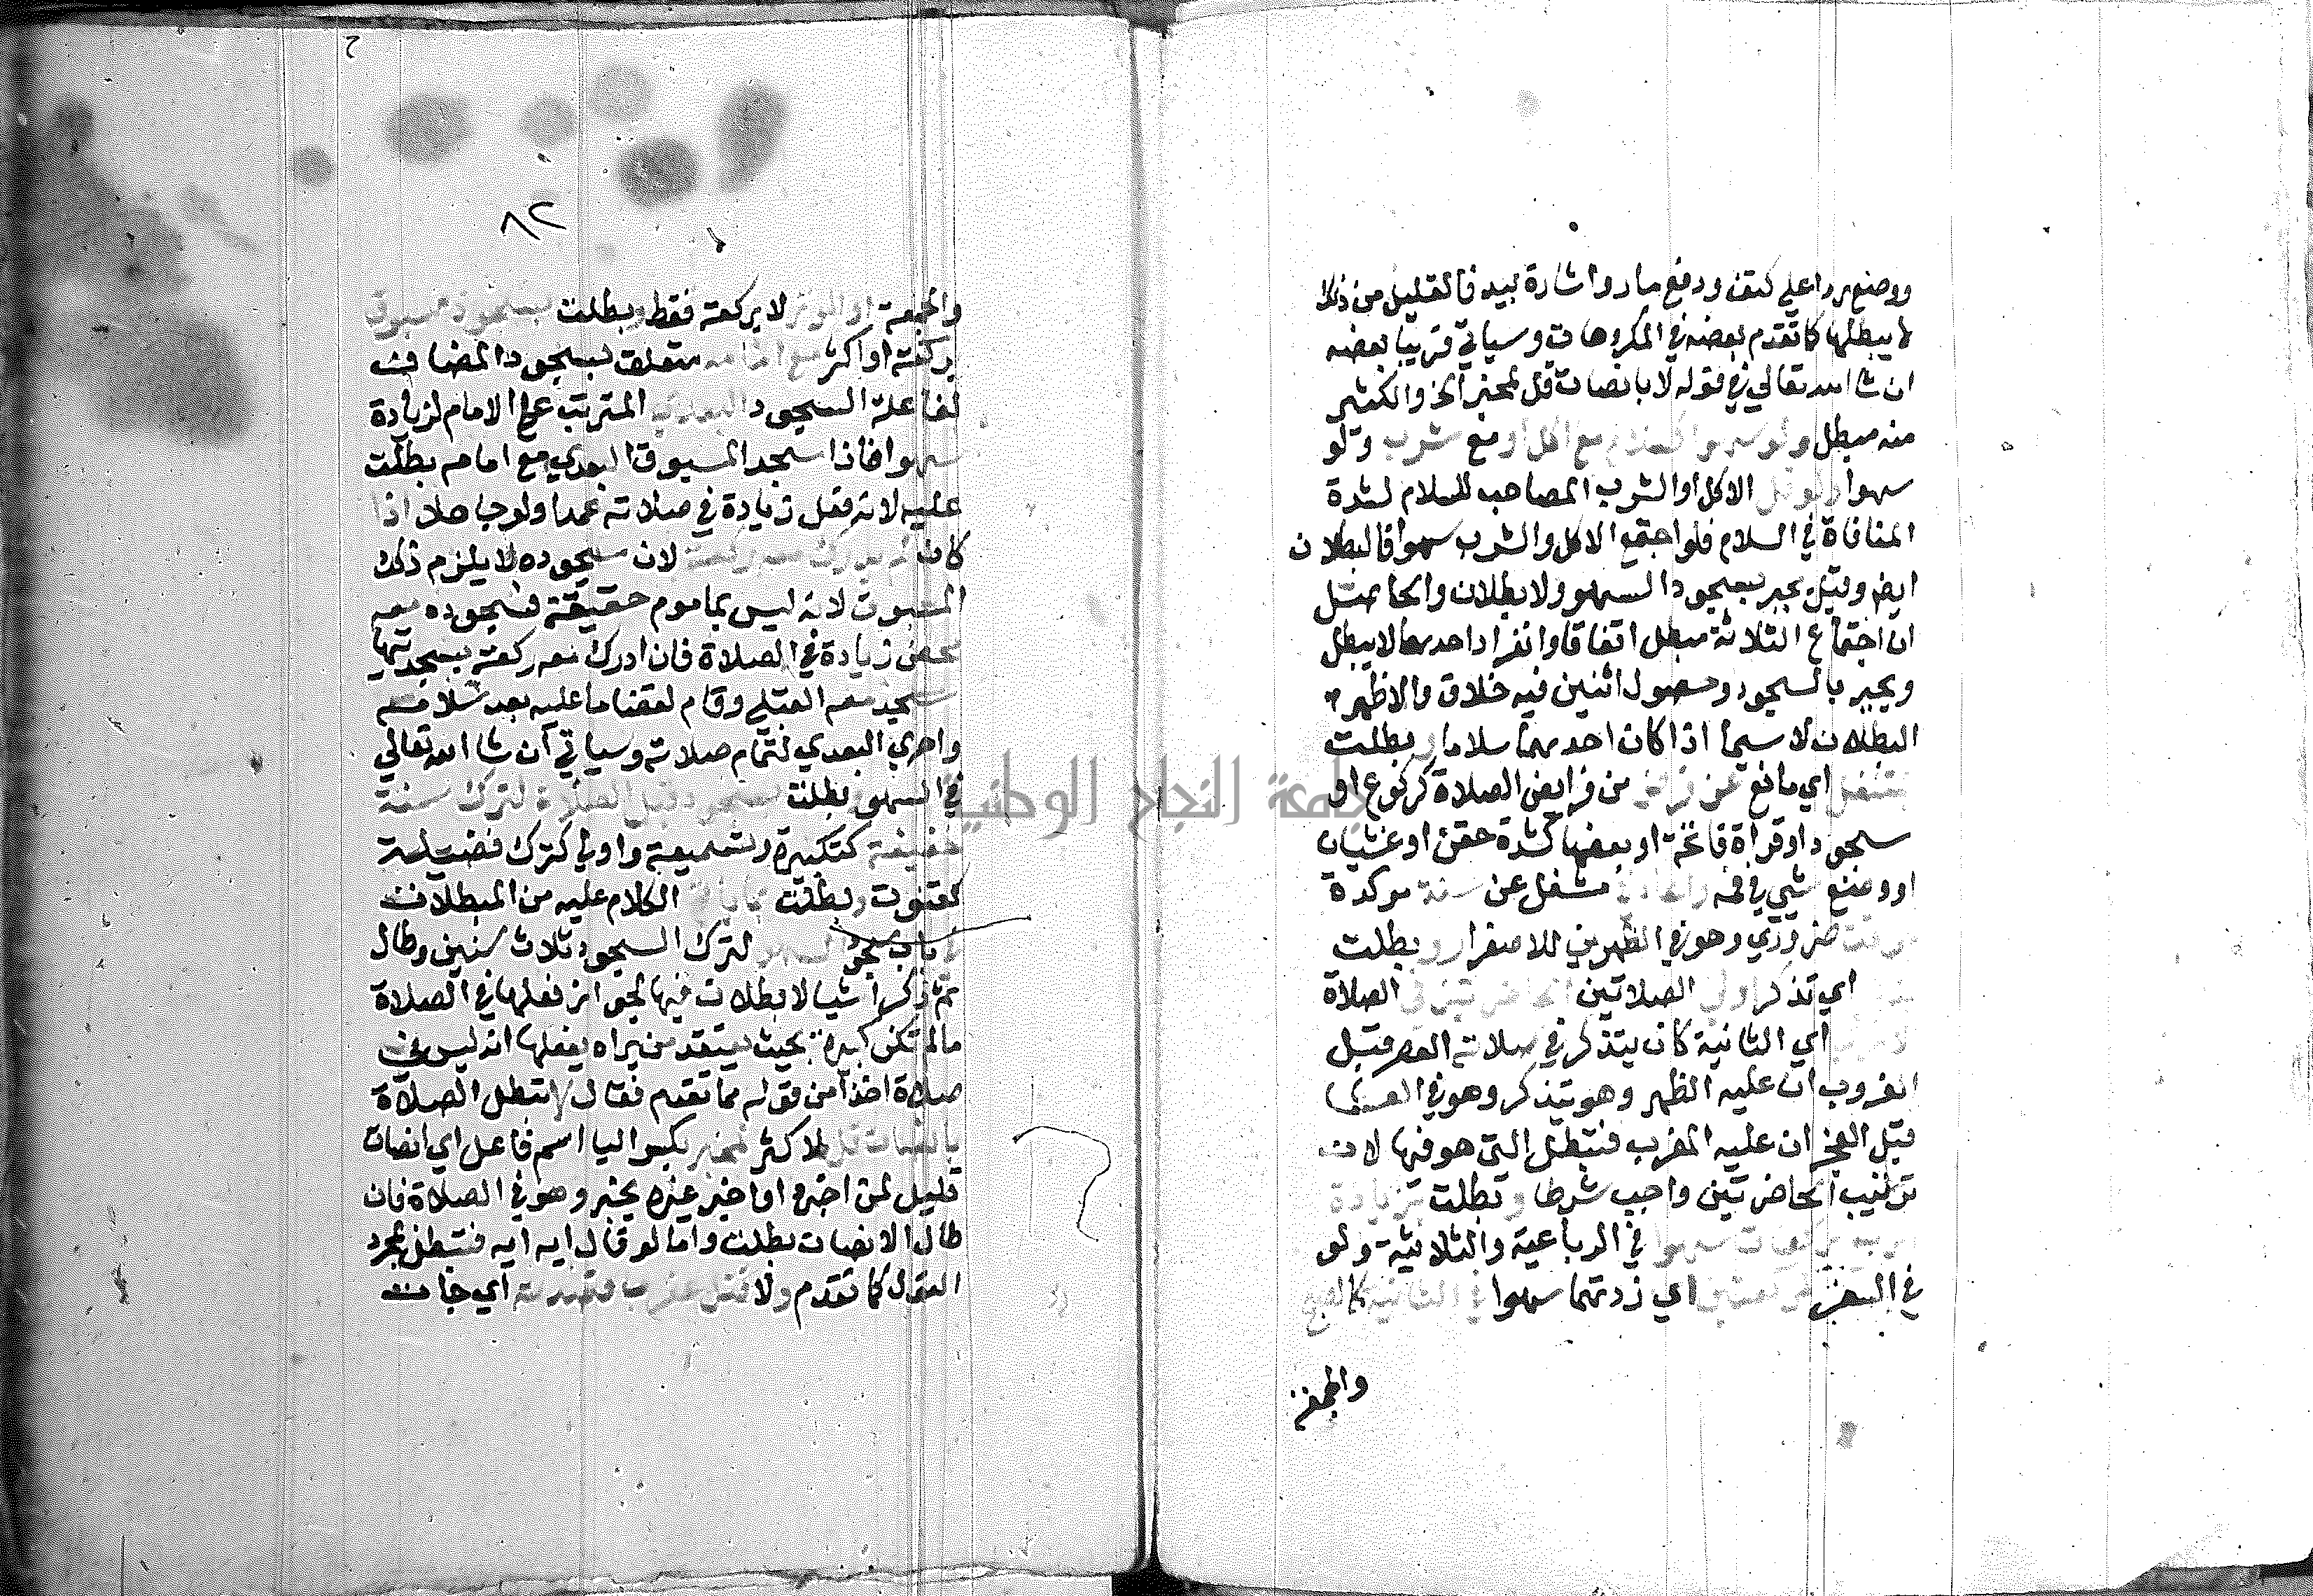 ووضع ردا على كتف ودفع مار واشارة بيد فالقليل من ذلك
لا يبطلها كما تقدم بعضه في المكروهات وسياتي قريبا بعضه
ان شا الله تعالي في قوله لا بانصات قل لمخبر الخ والكثير
منه مبطل و بسلام مع اكل او مع شرب ولو
سهوا الاكل او الشرب المصاحب للسلام لشدة
المنافاة في السلام فلو اجتمع الاكل والشرب سهوا فالبطلان
ايض وقيل يجبر بسجود السهو ولا بطلان والحاصل
ان اجتماع الثلاثة مبطل اتفاقا وانفراد احدها لا يبطل
ويجبر بالسجود وحصول اثنين فيه خلاف والاظهر
البطلان لا سيما اذا كان احدهما سلاما وبطلت
بمشغل اي مانع عن فرض من فرايض الصلاة كركوع او
سجود او قراة فاتحة او بعضها كشدة حقن او غثيان
او وضع شيي في فمه واعاد في مشغل عن سنة موكدة
بوقت ضروري وهو في الظهرين للاصفرار وبطلت
اي تذكر اولي الصلاتين الحاضرتين في الصلاة
اي الثانية كان يتذكر في صلاته العصر قبل
الغروب ان عليه الظهر وهو يتذكر وهو في العشا
قبل الفجر ان عليه المغرب فتبطل التي هو فيها لان
ترتيب الحاضرتين واجب شرطا وتطلت بزيادة
اربع ركعات سهوا في الرباعية والثلاثية ولو
في السفر وركعتين اي زدتهما سهوا في الثنائية كالصبح
والجمعة
٨٢
والجمعة او الوتر لا بركعة فقط وبطلت بسجود مسبوق
بركعة او اكثر مع امامه متعلق بسجود المضاف
لفاعله السجود البعدي المترتب علي الامام لزيادة
سهوا فاذا سجد المسبوق البعدي مع امامه بطلت
عليه لانه فعل زيادة في صلاته عمدا ولو جاهلا اذا
كان لم يدرك معه ركعة لان سجوده لا يلزم ذلك
المسبوق لانه ليس بماموم حقيقة فسجوده معه
محض زيادة في الصلاة فان ادرك معه ركعة بسجدتيها
سجد معه القبلي وقام لقضا ما عليه بعد سلامه
واخر البعدي لتمام صلاته وسياتي ان شا الله تعالي
في السهو وبطلت بسجود قبل السلام لترك سنة
خفيفة كتكبيرة وتسميعة واولي كترك فضيلة
كقنوت وبطلت بما ياتي الكلام عليه من المبطلات
في باب سجود السهو لترك السجود ثلاث سنين وطال
ثم ذكر اشيا لا بطلان فيها لجواز فعلها في الصلاة
ما لم تكن كبيرة بحيث يعتقد من يراه يفعلها انه ليس في
صلاة اخذا من قوله مما تقدم فقال لا تبطل الصلاة
بانصات قل لا كثر لمخبر بكسر اليا اسم فاعل اي انصات
قليل لمن اخبره او اخبر غيره بخبر وهو في الصلاة فان
طال الانصات بطلت واما لو قال ايه ايه فتبطل بمجرد
القول كما تقدم ولا قتل عقرب قصدته اي جات
جامعة النجاح الوطنية